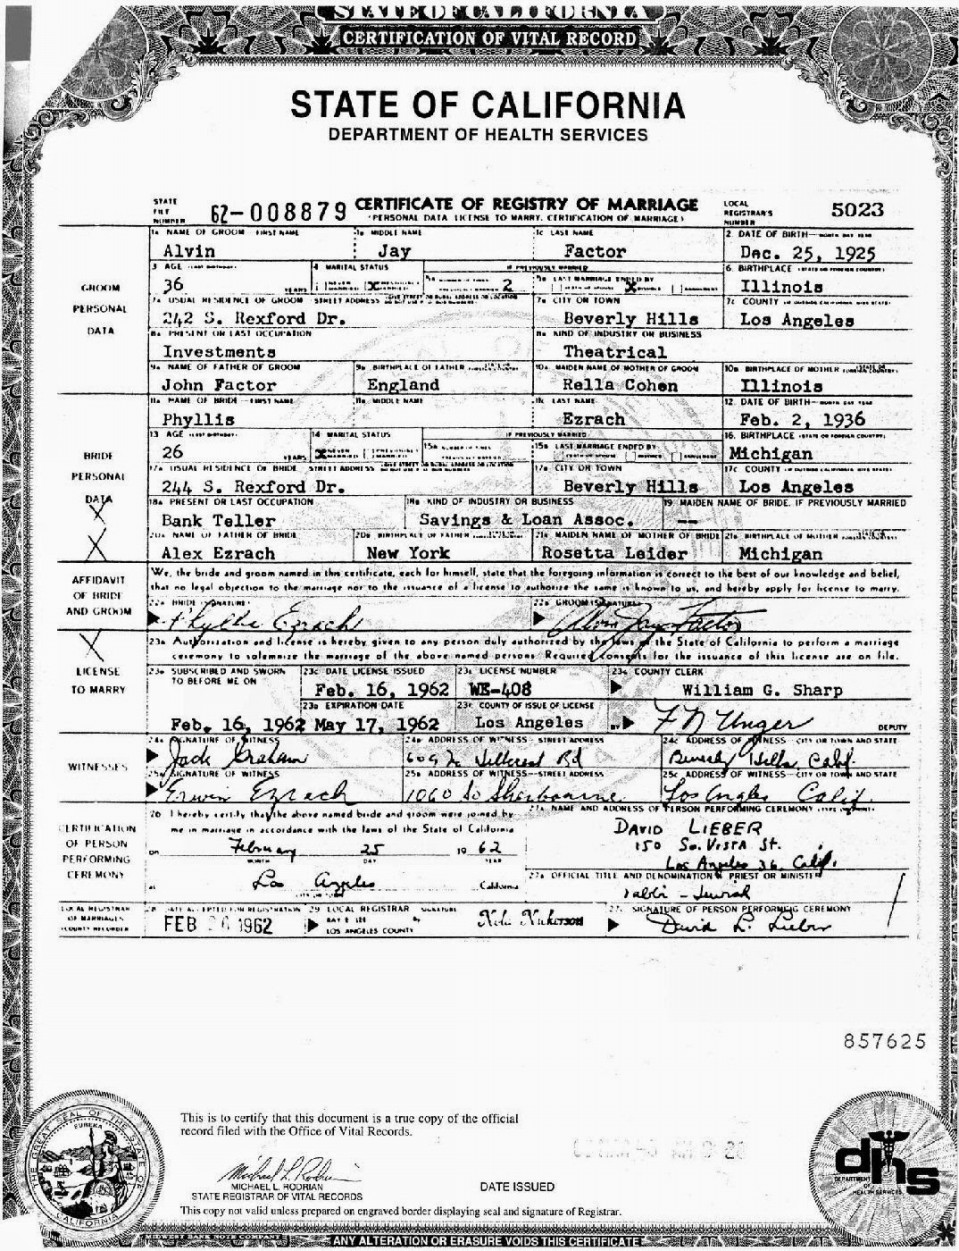 STATE OF CALIFORNIA
CERTIFICATION OF VITAL RECORD
STATE OF CALIFORNIA
DEPARTMENT OF HEALTH SERVICES
STATE FILE NUMBER 62-008879 CERTIFICATE OF REGISTRY OF MARRIAGE LOCAL REGISTRAR'S NUMBER 5023
(PERSONAL DATA LICENSE TO MARRY, CERTIFICATION OF MARRIAGE)
GROOM PERSONAL DATA
1a NAME OF GROOM FIRST NAME 1b MIDDLE NAME 1c LAST NAME 2. DATE OF BIRTH—MONTH DAY YEAR
Alvin Jay Factor Dec. 25, 1925
3 AGE 4 MARITAL STATUS IF PREVIOUSLY MARRIED 6. BIRTHPLACE
36 YEARS X 2 X Illinois
7a USUAL RESIDENCE OF GROOM STREET ADDRESS 7b CITY OR TOWN 7c COUNTY
242 S. Rexford Dr. Beverly Hills Los Angeles
8a PRESENT OR LAST OCCUPATION 8b KIND OF INDUSTRY OR BUSINESS
Investments Theatrical
9a NAME OF FATHER OF GROOM 9b BIRTHPLACE OF FATHER 10a MAIDEN NAME OF MOTHER OF GROOM 10b BIRTHPLACE OF MOTHER
John Factor England Rella Cohen Illinois
BRIDE PERSONAL DATA
11a NAME OF BRIDE—FIRST NAME 11b MIDDLE NAME 11c LAST NAME 12. DATE OF BIRTH—MONTH DAY YEAR
Phyllis Ezrach Feb. 2, 1936
13 AGE 14 MARITAL STATUS IF PREVIOUSLY MARRIED 15b LAST MARRIAGE ENDED BY 16. BIRTHPLACE
26 YEARS X NEVER MARRIED Michigan
17a USUAL RESIDENCE OF BRIDE STREET ADDRESS 17b CITY OR TOWN 17c COUNTY
244 S. Rexford Dr. Beverly Hills Los Angeles
18a PRESENT OR LAST OCCUPATION 18b KIND OF INDUSTRY OR BUSINESS 19 MAIDEN NAME OF BRIDE, IF PREVIOUSLY MARRIED
Bank Teller Savings & Loan Assoc. --
20a NAME OF FATHER OF BRIDE 20b BIRTHPLACE OF FATHER 21a MAIDEN NAME OF MOTHER OF BRIDE 21b BIRTHPLACE OF MOTHER
Alex Ezrach New York Rosetta Leider Michigan
AFFIDAVIT OF BRIDE AND GROOM
We, the bride and groom named in this certificate, each for himself, state that the foregoing information is correct to the best of our knowledge and belief,
that no legal objection to the marriage nor to the issuance of a license to authorize the same is known to us, and hereby apply for license to marry.
22a BRIDE (SIGNATURE) 22b GROOM (SIGNATURE)
Phyllis Ezrach Alvin Jay Factor
LICENSE TO MARRY
23a Authorization and License is hereby given to any person duly authorized by the laws of the State of California to perform a marriage
ceremony to solemnize the marriage of the above named persons Required consents for the issuance of this license are on file.
SUBSCRIBED AND SWORN TO BEFORE ME ON 23c DATE LICENSE ISSUED LICENSE NUMBER COUNTY CLERK
Feb. 16, 1962 WE-408 William G. Sharp
EXPIRATION DATE 23f COUNTY OF ISSUE OF LICENSE
Feb. 16, 1962 May 17, 1962 Los Angeles BY F N Unger DEPUTY
WITNESSES
24a SIGNATURE OF WITNESS 24b ADDRESS OF WITNESS—STREET ADDRESS 24c ADDRESS OF WITNESS—CITY OR TOWN AND STATE
Jack Graham 609 N Hillcrest Rd Beverly Hills, Calif.
25a SIGNATURE OF WITNESS 25b ADDRESS OF WITNESS—STREET ADDRESS 25c ADDRESS OF WITNESS—CITY OR TOWN AND STATE
Erwin Ezrach 1060 So Sherbourne Los Angeles Calif.
CERTIFICATION OF PERSON PERFORMING CEREMONY
26 I hereby certify that the above named bride and groom were joined by
me in marriage in accordance with the laws of the State of California
on February 25 19 62
MONTH DAY YEAR
at Los Angeles California
27a NAME AND ADDRESS OF PERSON PERFORMING CEREMONY
DAVID LIEBER
150 So. VISTA St.
Los Angeles 36, Calif.
OFFICIAL TITLE AND DENOMINATION IF PRIEST OR MINISTER
rabbi - Jewish
LOCAL REGISTRAR OF MARRIAGES (COUNTY RECORDER)
28 DATE ACCEPTED FOR REGISTRATION 29 LOCAL REGISTRAR SIGNATURE SIGNATURE OF PERSON PERFORMING CEREMONY
FEB 1962 RAY E. LEE LOS ANGELES COUNTY by Nola Nickerson David L. Lieber
857625
This is to certify that this document is a true copy of the official
record filed with the Office of Vital Records.
MICHAEL L. RODRIAN
STATE REGISTRAR OF VITAL RECORDS
DATE ISSUED
This copy not valid unless prepared on engraved border displaying seal and signature of Registrar.
GREAT SEAL OF THE STATE OF CALIFORNIA
EUREKA
dhs
DEPARTMENT OF HEALTH SERVICES
MIDWEST BANK NOTE COMPANY
ANY ALTERATION OR ERASURE VOIDS THIS CERTIFICATE